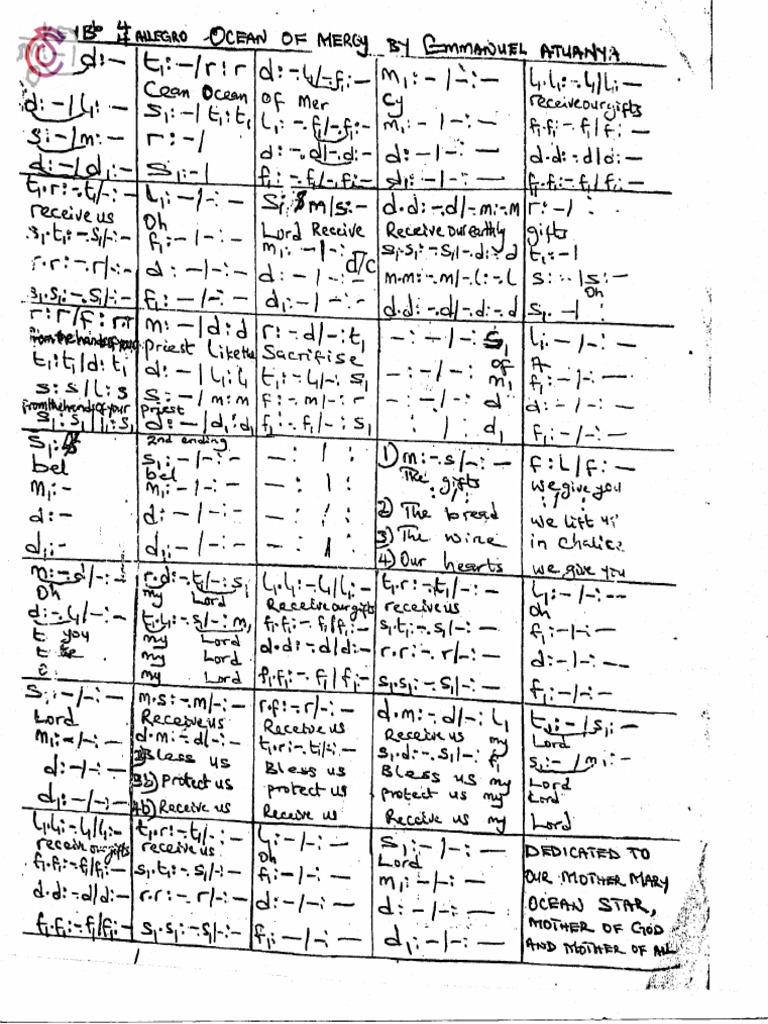 Bb 4 ALLEGRO OCEAN OF MERCY BY EMMANUEL ATUANYA
d:- | t₁:-/r:r | d:-.l₁/-f₁:- | m₁:-/-:- | l₁.l₁:-.l₁/l₁:-
Cean Ocean | Of Mer | Cy | receive our gifts
d:-/l₁:- | s₁:-/t₁:t₁ | l₁:-.f₁/-.f₁:- | m₁:-/-:- | f₁.f₁:-.f₁/f₁:-
s:-/m:- | r:-/ | d:-.d/-.d:- | d:-/-:- | d.d:-.d/d:-
d:-/d₁:- | s₁:-/ | f₁:-.f₁/-.f₁:- | d₁:-/-:- | f₁.f₁:-.f₁/f₁:-
t₁.r:-.t₁/-:- | l₁:-/-:- | s₁: m/s:- | d.d:-.d/-.m:-.m | r:-/
receive us | Oh | Lord Receive | Receive our earthly | gifts
s₁.t₁:-.s₁/-:- | f₁:-/-:- | m₁:-/-:- | s₁.s₁:-.s₁/-.d:-.d | t₁:-/
d/c
r.r:-.r/-:- | d:-/-:- | d:-/-:- | m.m:-.m/-.l:-.l | s:-/s:-
Oh
s₁.s₁:-.s₁/-:- | f₁:-/-:- | d₁:-/-:- | d.d:-.d/-.d:-.d | s₁:-/ :
r:r/f:r.r | m:-/d:d | r:-.d/-:t₁ | -:-/-:s₁ | l₁:-/-:-
from the hands of your | priest Like the | Sacrifise | of | A
t₁:t₁/d:t₁ | d:-/l₁:l₁ | t₁:-.l₁/-:s₁ | -:-/-:m₁ | f₁:-/-:-
s:s/l:s | s:-/m:m | f:-.m/-:r | -:-/-:d | d:-/-:-
from the hands of your | priest
s₁:s₁/l₁:s₁ | d:-/d₁:d₁ | f₁:-.f₁/-:s₁ | : / :d₁ | f₁:-/-:-
s₁: | 2nd ending s₁:-/-:- | -: / : | 1) m:-.s/-:- | f:l/f:-
bel | bel | The gifts | we give you
m₁:- | m₁:-/-:- | -: / :
d:- | d:-/-:- | -: / : | 2) The bread | we lift
3) The wine | in chalice
d₁:- | d₁:-/-:- | -: / : | 4) Our hearts | we give you
m:-.d/-:- | r.d:-.t₁/-:s₁ | l₁.l₁:-.l₁/l₁:- | t₁.r:-.t₁/-:- | l₁:-/-:-
Oh | my Lord | Receive our gifts | receive us | Oh
d:-.l₁/-:- | t₁.l₁:-.s₁/-:m₁ | f₁.f₁:-.f₁/f₁:- | s₁.t₁:-.s₁/-:- | f₁:-/-:-
you | my Lord
my Lord | d.d:-.d/d:- | r.r:-.r/-:- | d:-/-:-
my Lord | f₁.f₁:-.f₁/f₁:- | s₁.s₁:-.s₁/-:- | f₁:-/-:-
s₁:-/-:- | m.s:-.m/-:- | r.f:-.r/-:- | d.m:-.d/-:l₁ | t₁:-/s₁:-
Lord | Receive us | Receive us | Receive us my | Lord
m₁:-/-:- | d.m:-.d/-:- | t₁.r:-.t₁/-:- | s₁.d:-.s₁/-:f₁ | s₁:-/m₁:-
d:-/-:- | Bless us | Bless us | Bless us my | Lord
3b) Protect us | protect us | protect us my | Lord
d₁:-/-:- | 4b) Receive us | Receive us | Receive us my | Lord
l₁.l₁:-.l₁/l₁:- | t₁.r:-.t₁/-:- | l₁:-/-:- | s₁:-/-:- | DEDICATED TO
receive our gifts | receive us | Oh | Lord
f₁.f₁:-.f₁/f₁:- | s₁.t₁:-.s₁/-:- | f₁:-/-:- | m₁:-/-:- | OUR MOTHER MARY
d.d:-.d/d:- | r.r:-.r/-:- | d:-/-:- | d:-/-:- | OCEAN STAR,
MOTHER OF GOD
f₁.f₁:-.f₁/f₁:- | s₁.s₁:-.s₁/-:- | f₁:-/-:- | d₁:-/-:- | AND MOTHER OF ALL